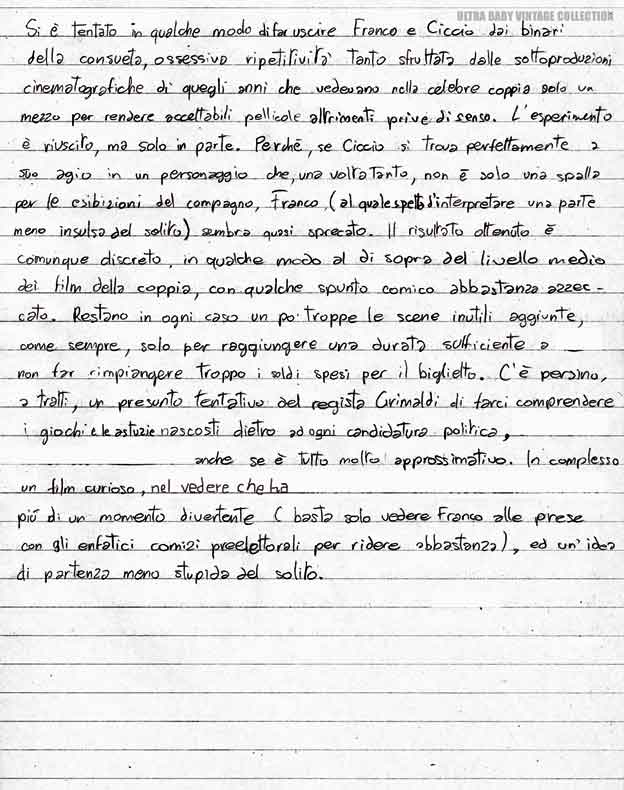 ULTRA BABY VINTAGE COLLECTION
Si è tentato in qualche modo di far uscire Franco e Ciccio dai binari
della consueta, ossessiva ripetitività tanto sfruttata dalle sottoproduzioni
cinematografiche di quegli anni che vedevano nella celebre coppia solo un
mezzo per rendere accettabili pellicole altrimenti prive di senso. L'esperimento
è riuscito, ma solo in parte. Perché, se Ciccio si trova perfettamente a
suo agio in un personaggio che, una volta tanto, non è solo una spalla
per le esibizioni del compagno, Franco, (al quale spetta d'interpretare una parte
meno insulsa del solito) sembra quasi sprecato. Il risultato ottenuto è
comunque discreto, in qualche modo al di sopra del livello medio
dei film della coppia, con qualche spunto comico abbastanza azzec-
cato. Restano in ogni caso un po' troppe le scene inutili aggiunte,
come sempre, solo per raggiungere una durata sufficiente a
non far rimpiangere troppo i soldi spesi per il biglietto. C'è persino,
a tratti, un presunto tentativo del regista Grimaldi di farci comprendere
i giochi e le astuzie nascosti dietro ad ogni candidatura politica,
anche se è tutto molto approssimativo. In complesso
un film curioso, nel vedere che ha
più di un momento divertente (basta solo vedere Franco alle prese
con gli enfatici comizi preelettorali per ridere abbastanza), ed un'idea
di partenza meno stupida del solito.